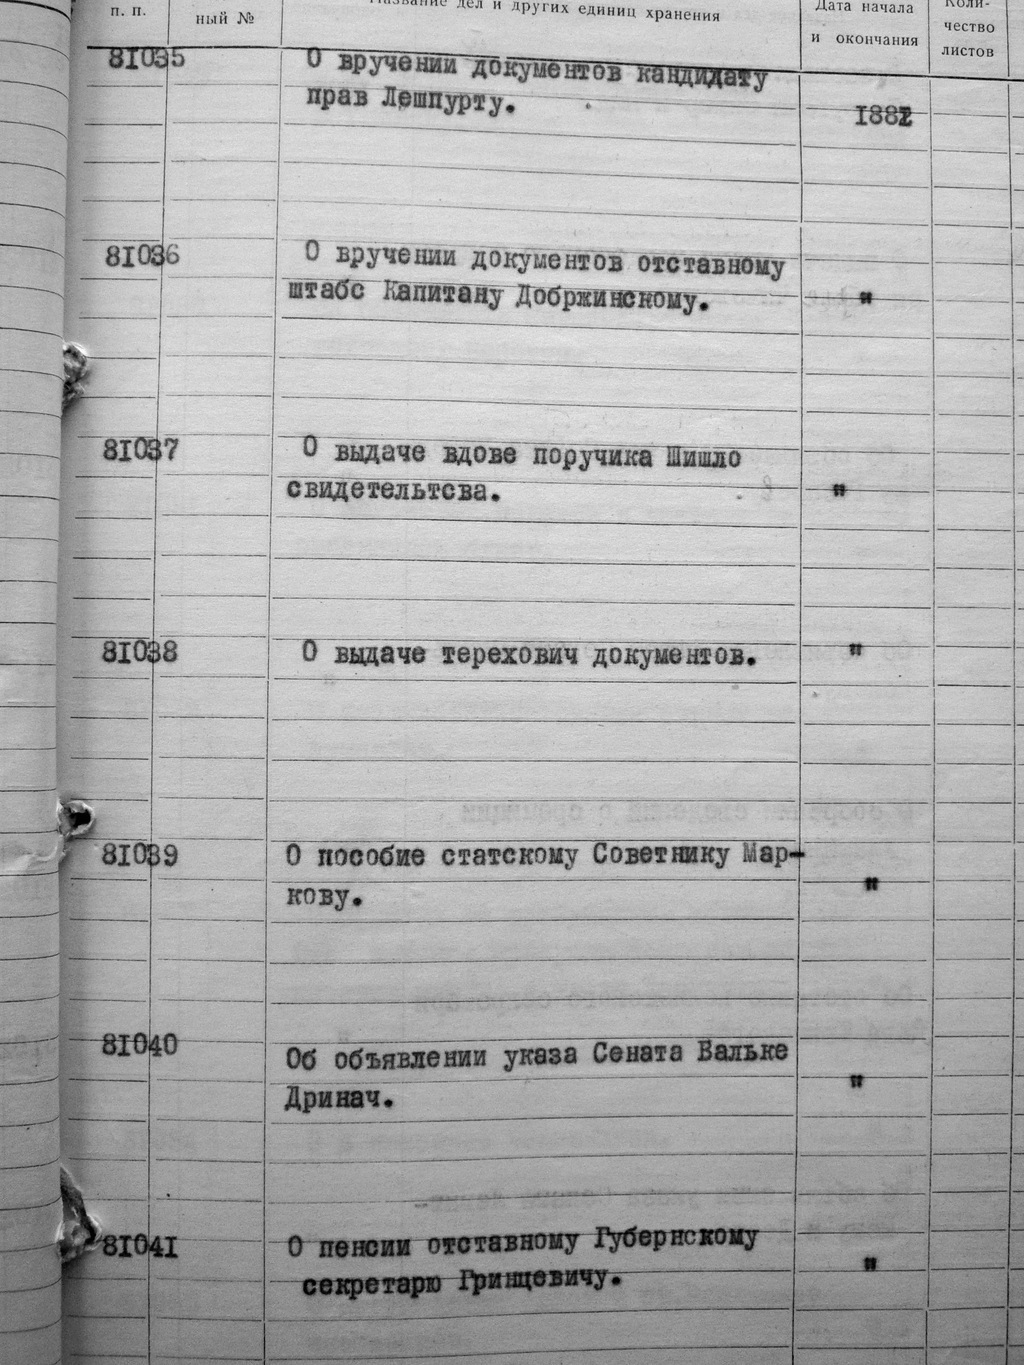 п. п.
ный №
Название дел и других единиц хранения
Дата начала
и окончания
Коли-
чество
листов
81035
О вручении документов кандидату
прав Лешпурту.
1882
81036
О вручении документов отставному
штабс Капитану Добржинскому.
"
81037
О выдаче вдове поручика Шишло
свидетельтсва.
"
81038
О выдаче терехович документов.
"
81039
О пособие статскому Советнику Мар-
кову.
"
81040
Об объявлении указа Сената Вальке
Дринач.
"
81041
О пенсии отставному Губернскому
секретарю Гринцевичу.
"